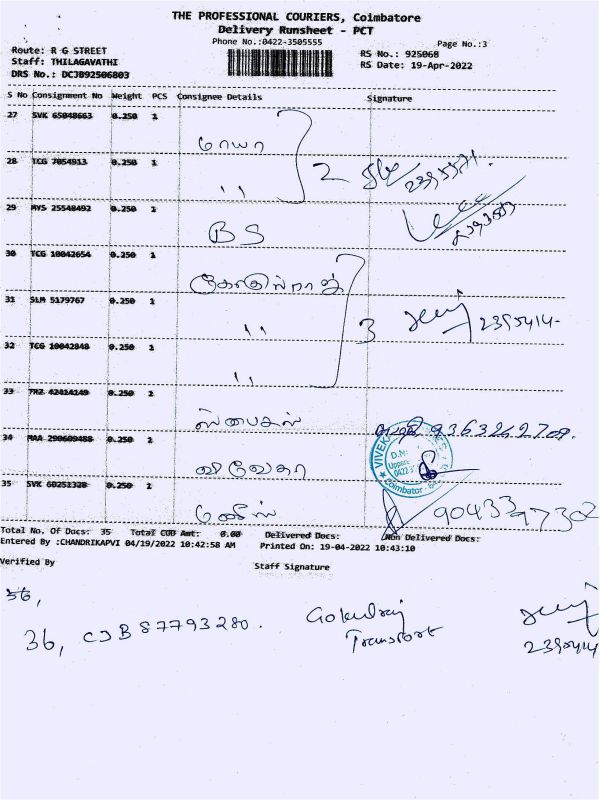 THE PROFESSIONAL COURIERS, Coimbatore
Delivery Runsheet - PCT
Phone No.:0422-3505555
Page No.:3
Route: R G STREET
Staff: THILAGAVATHI
DRS No.: DC3B92506803
RS No.: 925068
RS Date: 19-Apr-2022
S No Consignment No Weight PCS Consignee Details Signature
27 SVK 65048663 0.250 1
மாயா
28 TCG 7054913 0.250 1
,, 2
29 MYS 25548492 0.250 1
BS
30 TCG 10042654 0.250 1
கோகுல்ராஜ்
31 SLM 5179767 0.250 1
,, 3 2395414
32 TCG 10042848 0.250 1
,,
33 TRZ 42414149 0.250 1
ஸ்பைசஸ்
34 MAA 290609488 0.250 1
விவேகா
35 SVK 60251328 0.250 1
90433 97302
Total No. Of Docs: 35 Total COD Amt: 0.00 Delivered Docs: Non Delivered Docs:
Entered By :CHANDRIKAPVI 04/19/2022 10:42:58 AM Printed On: 19-04-2022 10:43:10
Verified By Staff Signature
36,
36, CJB 87793280. Gokulraj
Transport
2395414